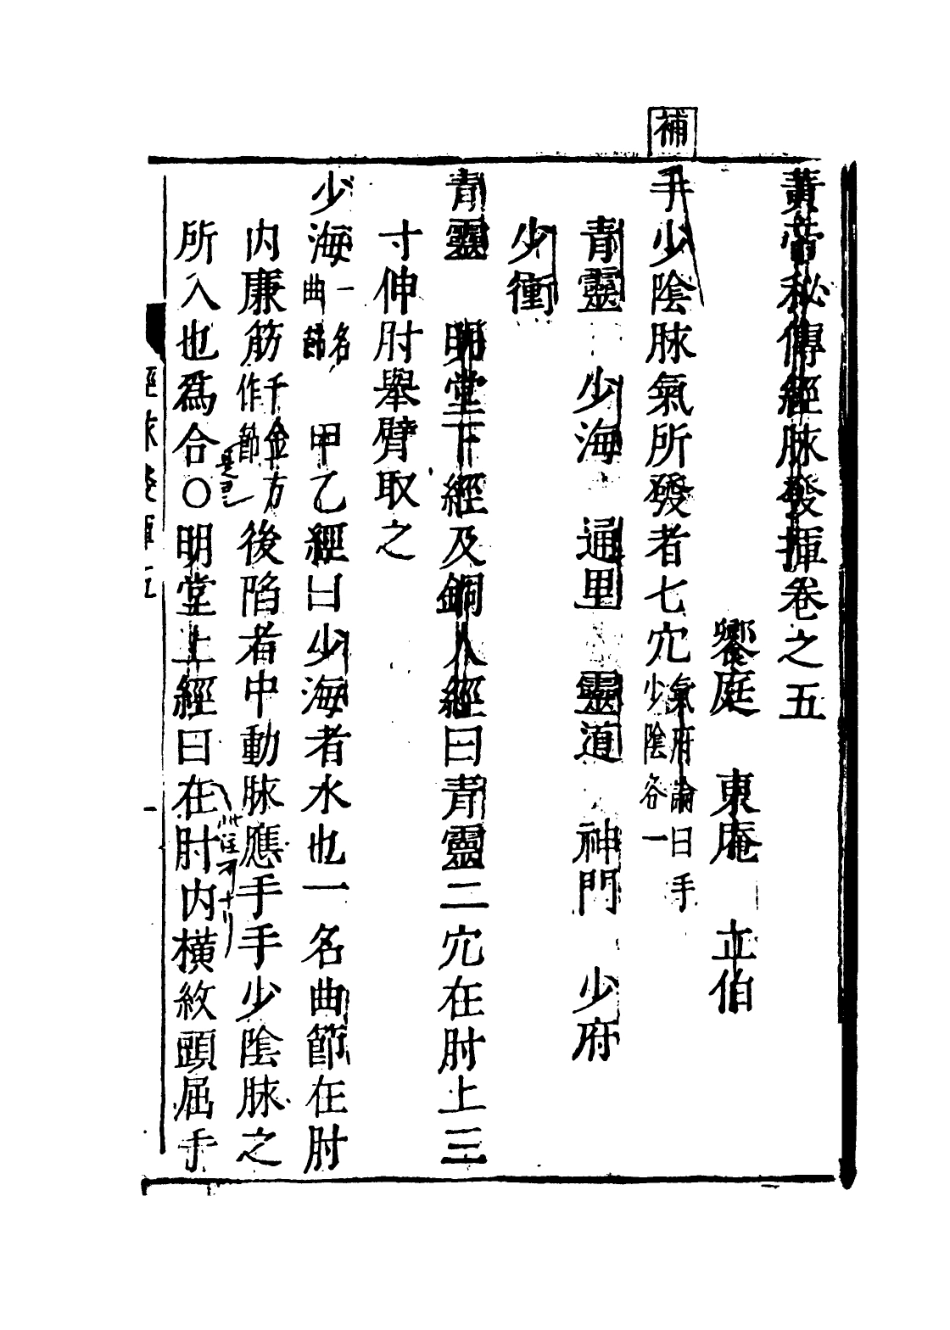 黃帝秘傳經脉發揮卷之五
饗庭　東庵　立伯
補
手少陰脉氣所發者七穴氣府論曰手少陰各一
青靈　少海　通里　靈道　神門　少府
少衝
青靈　明堂下經及銅人經曰青靈二穴在肘上三
寸伸肘舉臂取之
少海一名曲節　甲乙經曰少海者水也一名曲節在肘
内廉筋千金方作節後陷者中動脉應手手少陰脉之
所入也爲合〇明堂上經曰在肘内横紋頭屈手
經脉發揮五
一